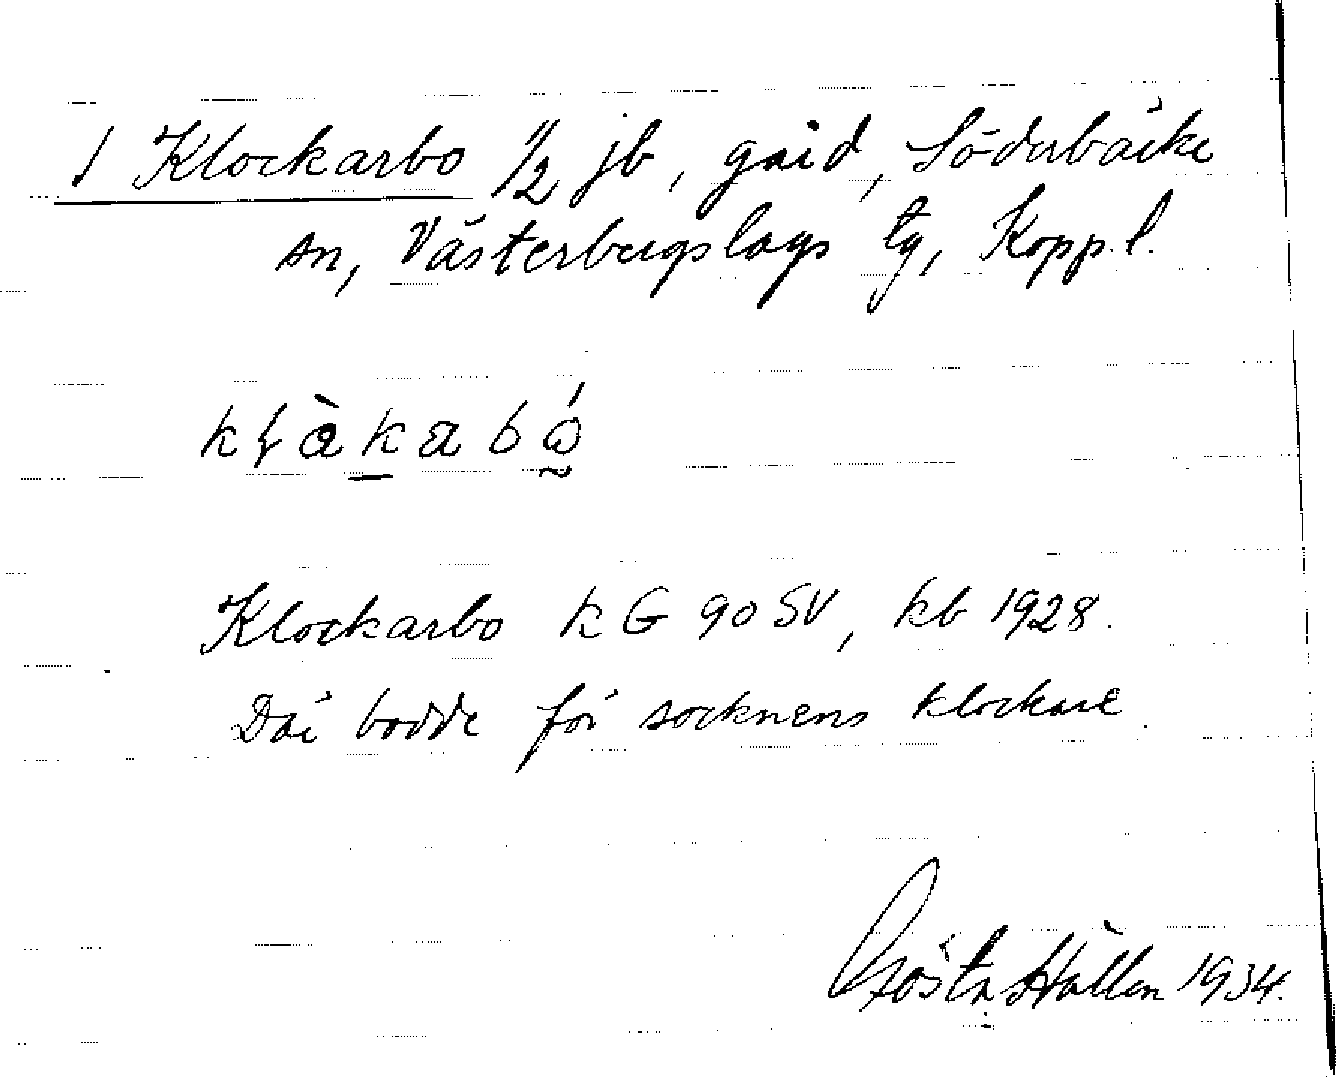 1 Klockarbo 1/2 jb, gård, Söderbärke
sn, Västerbergslags tg, Kopp.l.
Klockarbo k G 90 SV, kb 1928.
Där bodde för socknens klockare.
Gösta Hallen 1934.